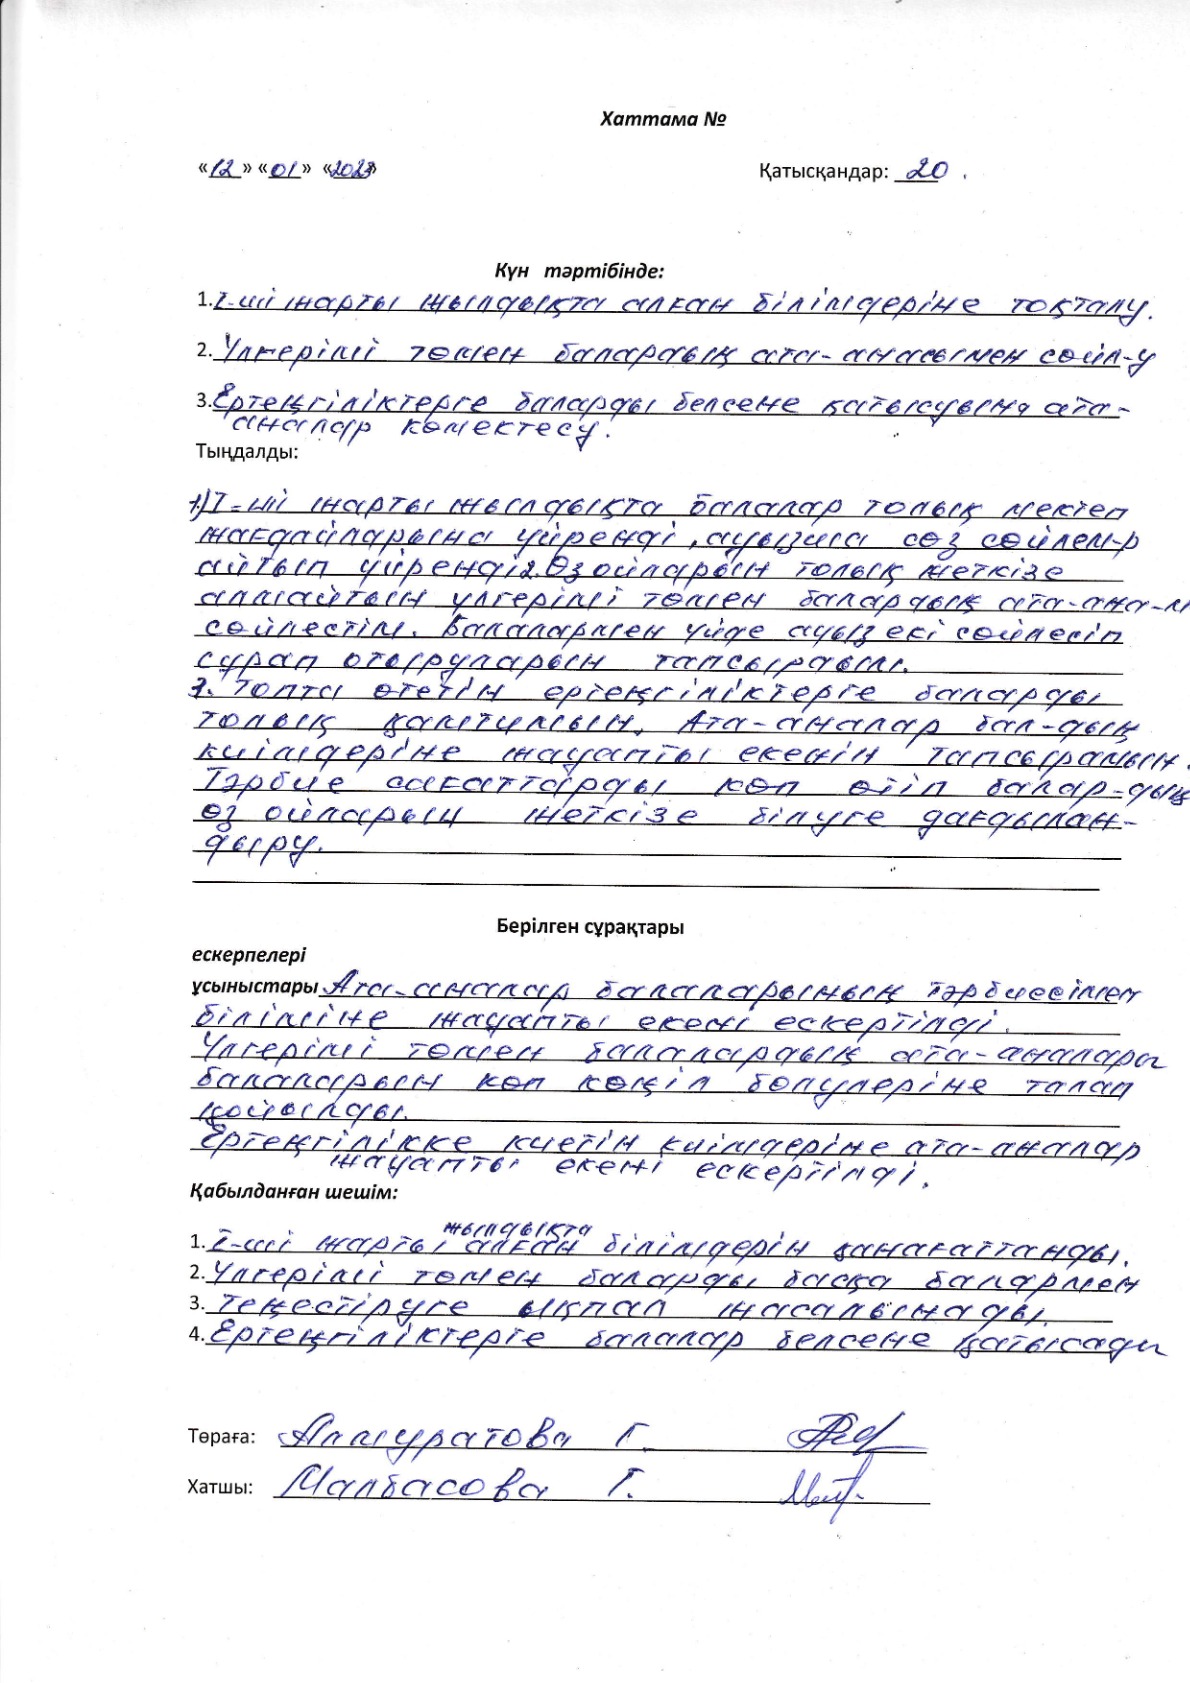 Хаттама №
«12» «01» «2023» Қатысқандар: 20
Күн тәртібінде:
1. І-ші жарты жылдықта алған білімдеріне тоқталу.
2. Үлгерімі төмен балардың ата-анасымен сөйл-у
3. Ертеңгіліктерге баларды белсене қатысуына ата-
аналар көмектесу.
Тыңдалды:
1) І-ші жарты жылдықта балалар толық мектеп
жағдайларына үйренді, ауызша сөз сөйлем-р
айтып үйренді 2. Өз ойларын толық жеткізе
алмайтын үлгерімі төмен балардың ата-ана-м
сөйлестім. Балалармен үйде ауыз екі сөйлесіп
сұрап отыруларын тапсырдым.
3. Топта өтетін ертеңгіліктерге баларды
толық қамтимын. Ата-аналар бал-дың
киімдеріне жауапты екенін тапсырамын.
Тәрбие сағаттарды көп өтіп балар-дың
өз ойларын жеткізе білуге дағдылан-
дыру.
Берілген сұрақтары
ескерпелері
ұсыныстары Ата-аналар балаларының тәрбиесімен
біліміне жауапты екені ескертілді.
Үлгерімі төмен балалардың ата-аналары
балаларын көп көңіл бөлулеріне талап
қойылды.
Ертеңгілікке киетін киімдеріне ата-аналар
жауапты екені ескертілді.
Қабылданған шешім:
жылдықта
1. І-ші жарты алған білімдерін қанағаттанды.
2. Үлгерімі төмен баларды басқа балармен
3. теңестіруге ықпал жасалынады.
4. Ертеңгіліктерге балалар белсене қатысады
Төраға: Алмуратова Г.
Хатшы: Малбасова Г.